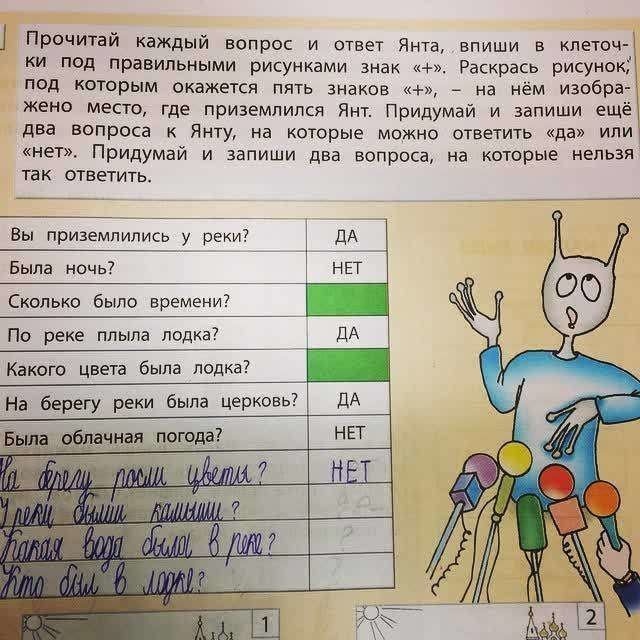 Прочитай каждый вопрос и ответ Янта, впиши в клеточ-
ки под правильными рисунками знак «+». Раскрась рисунок,
под которым окажется пять знаков «+», – на нём изобра-
жено место, где приземлился Янт. Придумай и запиши ещё
два вопроса к Янту, на которые можно ответить «да» или
«нет». Придумай и запиши два вопроса, на которые нельзя
так ответить.
Вы приземлились у реки? ДА
Была ночь? НЕТ
Сколько было времени?
По реке плыла лодка? ДА
Какого цвета была лодка?
На берегу реки была церковь? ДА
Была облачная погода? НЕТ
На берегу росли цветы? НЕТ
У реки были камыши?
Какая вода была в реке? ?
Кто был в лодке? ?
1
2